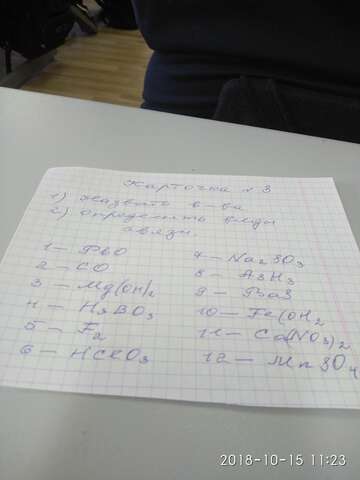 Карточка № 3
1) Назвать в-ва
2) определить виды
связи.
1 — PbO
2 — CO
3 — Mg(OH)2
4 — H3BO3
5 — F2
6 — HClO3
7 — Na2SO3
8 — AsH3
9 — BaS
10 — Fe(OH)2
11 — Ca(NO3)2
12 — MnSO4
2018-10-15 11:23